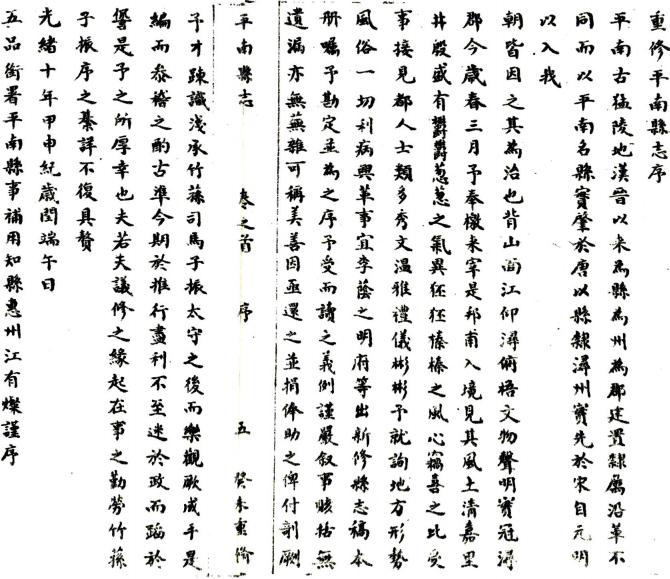 重修平南縣志序
平南古猛陵地漢晉以来為縣為州為郡建置隸屬沿革不
同而以平南名縣實肇於唐以縣隸潯州實先於宋自元明
以入我
朝皆因之其為治也背山面江仰潯俯梧文物聲明實冠潯
郡今歲春三月予奉檄来宰是邦甫入境見其風土清嘉里
井殷盛有鬱鬱蔥蔥之氣異狉狉榛榛之風心竊喜之比受
事接見都人士類多秀文溫雅禮儀彬彬予就詢地方形勢
風俗一切利病興革事宜李蔭之明府等出新修縣志稿本
冊囑予勘定並為之序予受而讀之義例謹嚴叙事賅括無
遺漏亦無蕪雜可稱美善因亟還之並捐俸助之俾付剞劂
平南縣志 卷之首 序 五 癸未重脩
予才疎識淺承竹蓀司馬子振太守之後而樂觀厥成手是
編而叅稽之酌古準今期於推行盡利不至迷於政而蹈於
愆是予之所厚幸也夫若夫議修之緣起在事之勤勞竹蓀
子振序之綦詳不復具贅
光緒十年甲申紀歲閏端午日
五品銜署平南縣事補用知縣惠州江有燦謹序